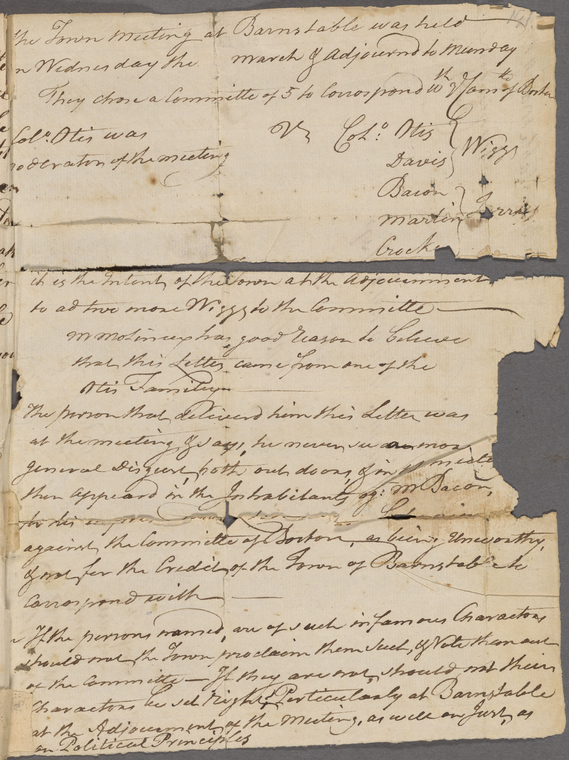 the Town Meeting at Barnstable was held
n Wednesday the march & adjournd to Munday
They chose a Committe of 5 to Corrospond wth ye Com of Boston
Colo. Otis was
oderator of the meeting
Vz Colo: Otis
Davis
Wiggs
Bacon
Martin
Torrys
Crocke
it is the Intent of the Town at the Adjournment
to ad two more Wiggs to the Committe
Mr Molineux has good reason to believe
that this Letter came from one of the
Otis Familys
The person that deliverd him this Letter was
at the meeting & says, he never saw a more
General Disgust, both out doors, & in
then appeard in the Inhabitants, ag: Mr Bacon,
for his
against the Committe of Boston, as being Unworthy,
& not for the Credit of the Town of Barnstable to
Corrospond with
If the persons named, are of such infamous Charactors
should not the Town proclaim them such, & Vote them out
of the Committe — If they are not, should not their
Charactors be set right, Particularly at Barnstable
at the Adjournment of the Meeting, as well on Just, as
on Political Principles